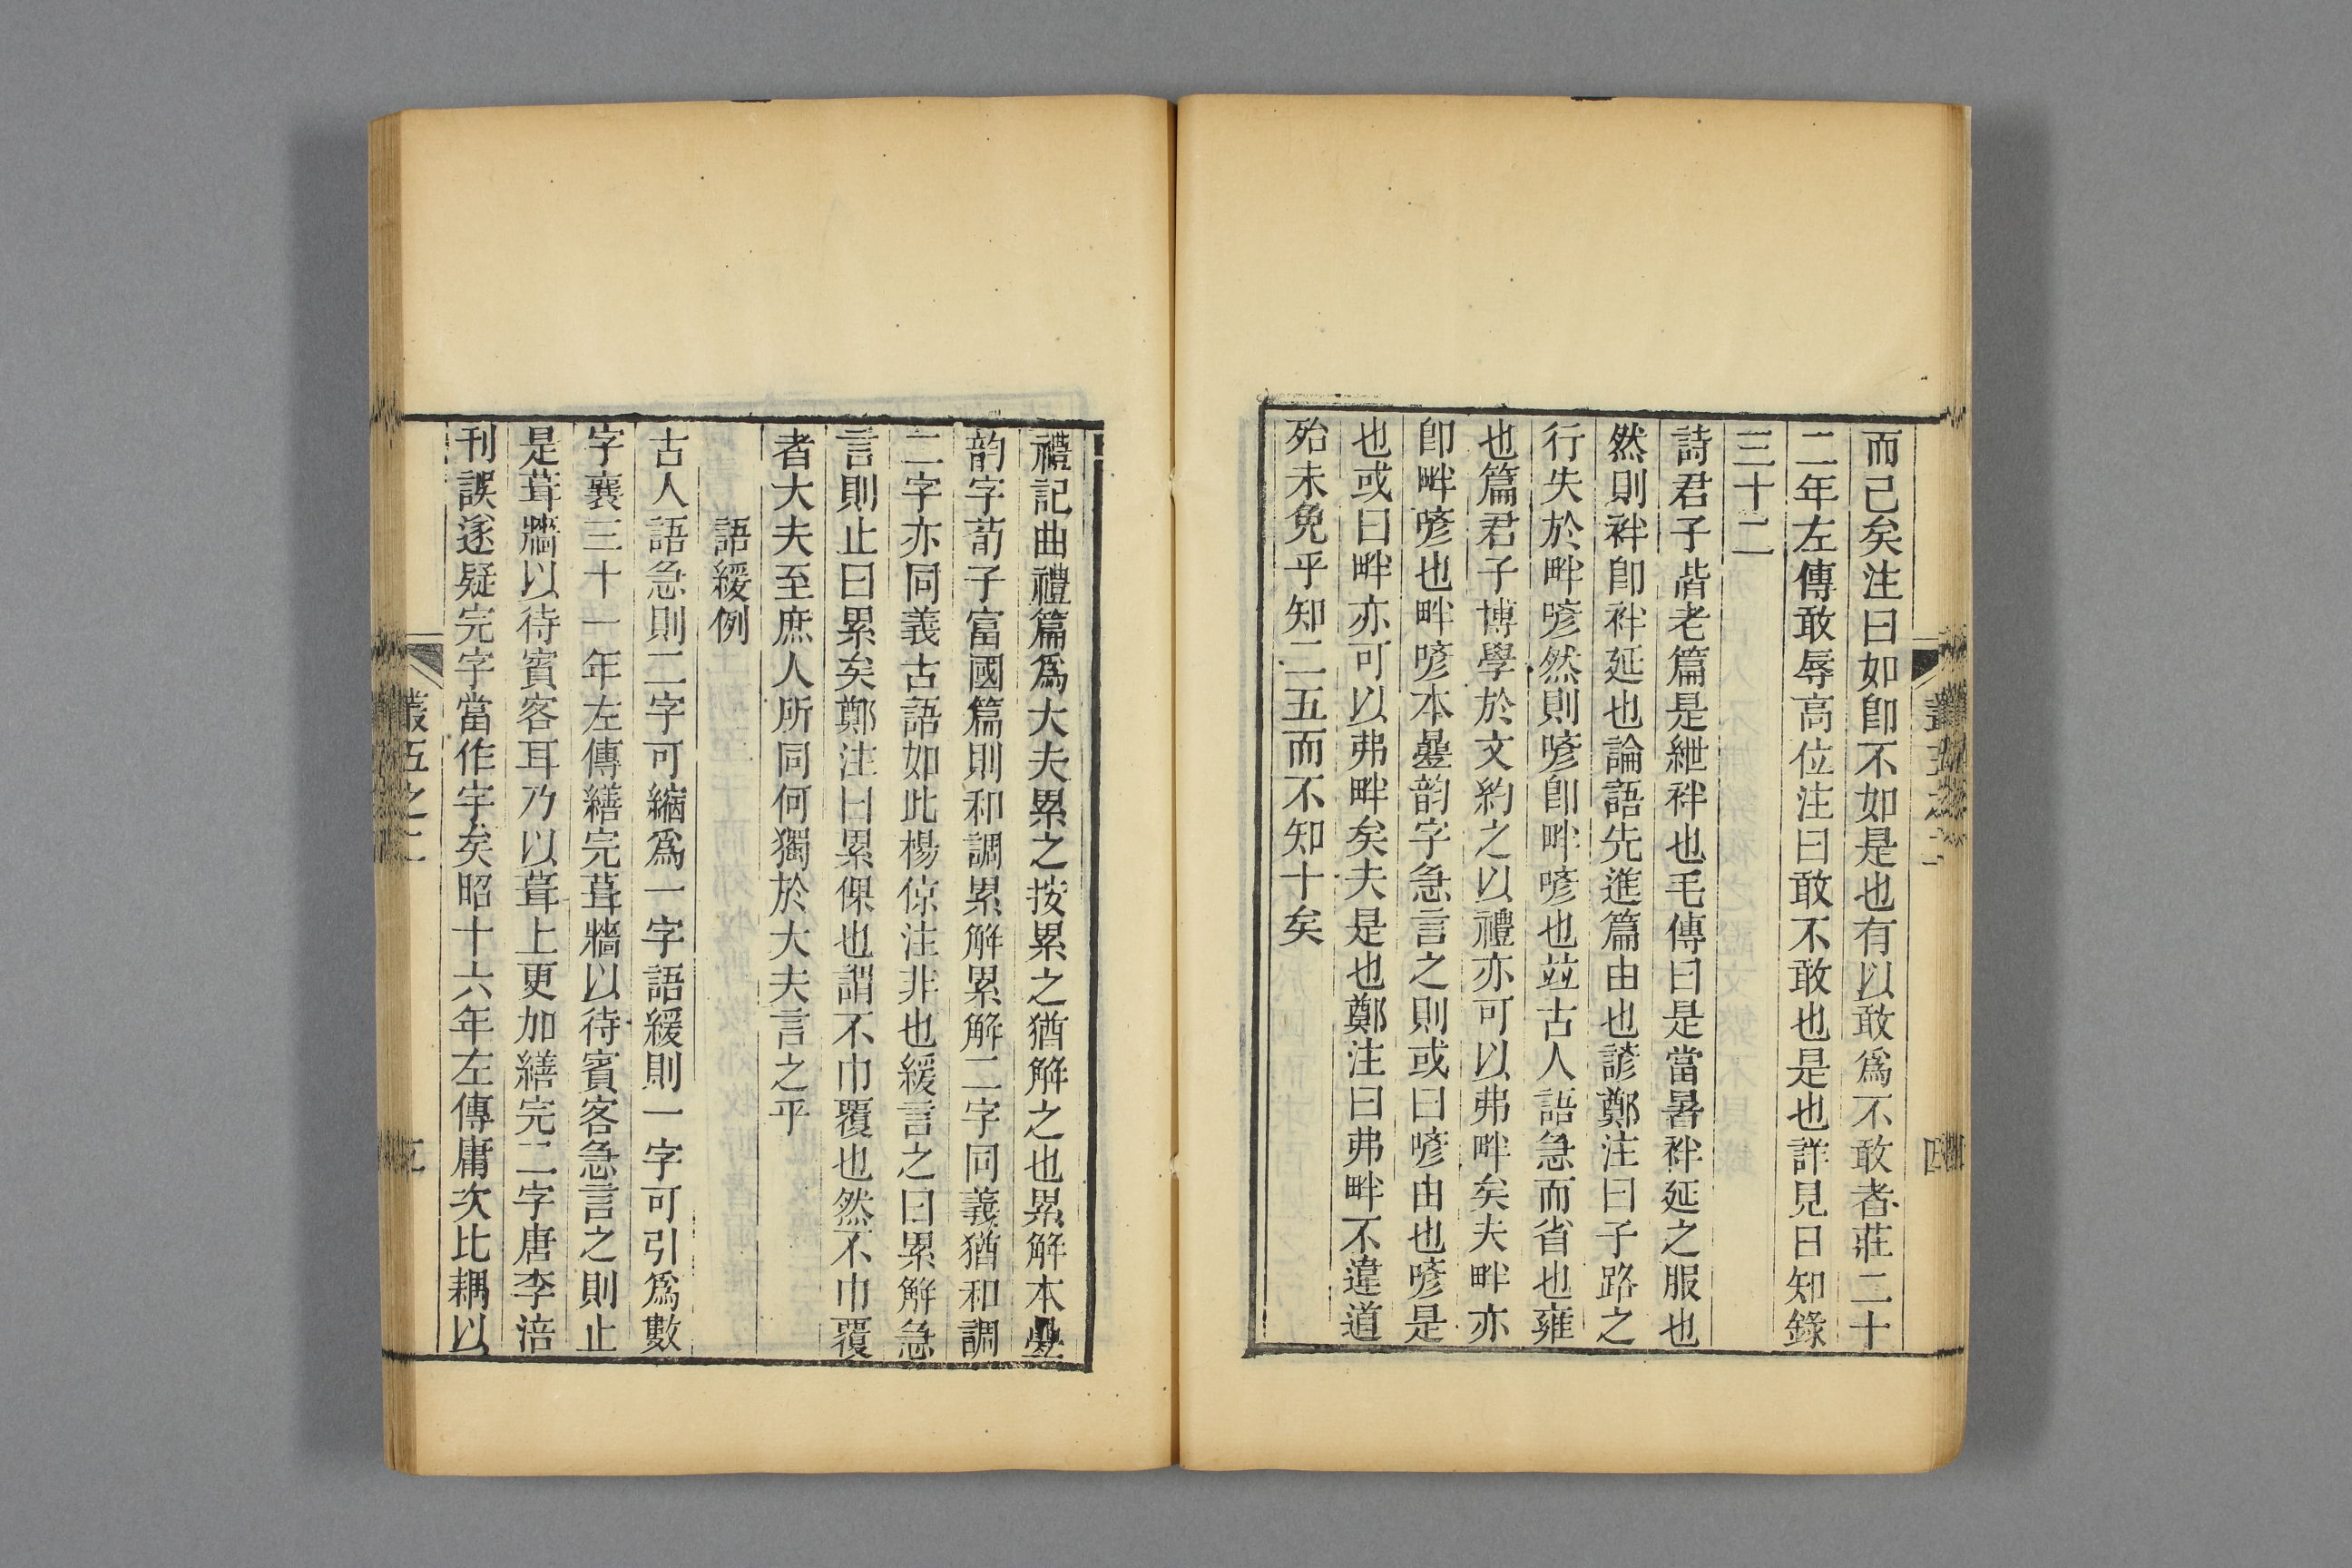 而已矣注曰如卽不如是也有以敢爲不敢者莊二十
二年左傳敢辱高位注曰敢不敢也是也詳見日知錄
三十二
詩君子偕老篇是紲袢也毛傳曰是當暑袢延之服也
然則袢卽袢延也論語先進篇由也諺鄭注曰子路之
行失於畔喭然則喭卽畔喭也竝古人語急而省也雍
也篇君子博學於文約之以禮亦可以弗畔矣夫畔亦
卽畔喭也畔喭本曡韵字急言之則或曰喭由也喭是
也或曰畔亦可以弗畔矣夫是也鄭注曰弗畔不違道
殆未免乎知二五而不知十矣
四
禮記曲禮篇爲大夫累之按累之猶解之也累解本曡
韵字荀子富國篇則和調累解累解二字同義猶和調
二字亦同義古語如此楊倞注非也緩言之曰累解急
言則止曰累矣鄭注曰累倮也謂不巾覆也然不巾覆
者大夫至庶人所同何獨於大夫言之乎
語緩例
古人語急則二字可縮爲一字語緩則一字可引爲數
字襄三十一年左傳繕完葺牆以待賓客急言之則止
是葺牆以待賓客耳乃以葺上更加繕完二字唐李涪
刊誤遂疑完字當作宇矣昭十六年左傳庸次比耦以
叢五之二